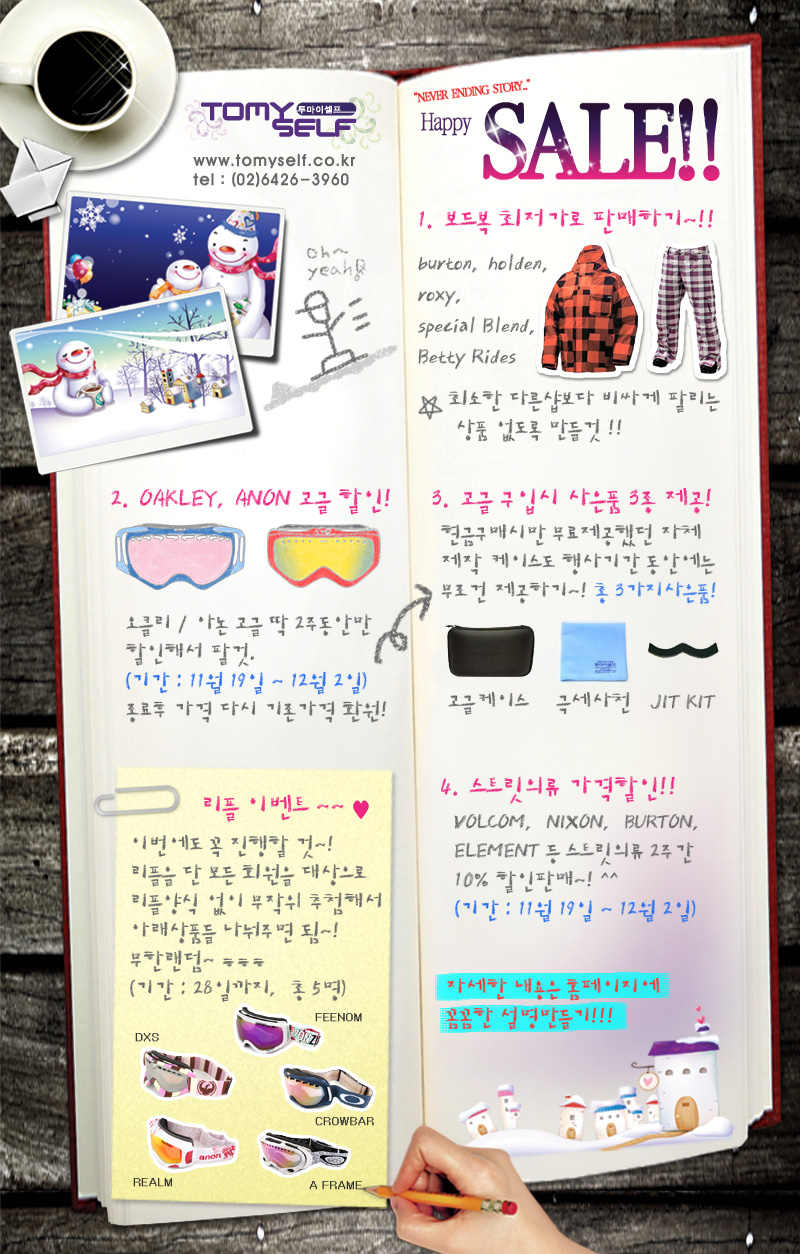 TOMY
투마이셀프
SELF
www.tomyself.co.kr
tel : (02)6426-3960
"NEVER ENDING STORY..."
Happy
SALE!!
oh~
yeah!
1. 보드복 최저가로 판매하기~!!
burton, holden,
roxy,
special Blend,
Betty Rides
최소한 다른샵보다 비싸게 팔리는
상품 없도록 만들것 !!
2. OAKLEY, ANON 고글 할인!
오클리 / 아논 고글 딱 2주동안만
할인해서 팔것.
(기간 : 11월 19일 ~ 12월 2일)
종료후 가격 다시 기존가격 환원!
3. 고글 구입시 사은품 3종 제공!
현금구매시만 무료제공했던 자체
제작 케이스도 행사기간 동안에는
무조건 제공하기~! 총 3가지사은품!
고글케이스
극세사천
JIT KIT
4. 스트릿의류 가격할인!!
VOLCOM, NIXON, BURTON,
ELEMENT 등 스트릿의류 2주간
10% 할인판매~! ^^
(기간 : 11월 19일 ~ 12월 2일)
자세한 내용은 홈페이지에
꼼꼼한 설명만들기!!!
리플 이벤트 ~~ ♥
이번에도 꼭 진행할 것~!
리플을 단 모든 회원을 대상으로
리플양식 없이 무작위 추첨해서
아래상품들 나눠주면 됨~!
무한랜덤~ ㅎㅎㅎ
(기간 : 28일까지, 총 5명)
FEENOM
DXS
CROWBAR
anon
REALM
A FRAME